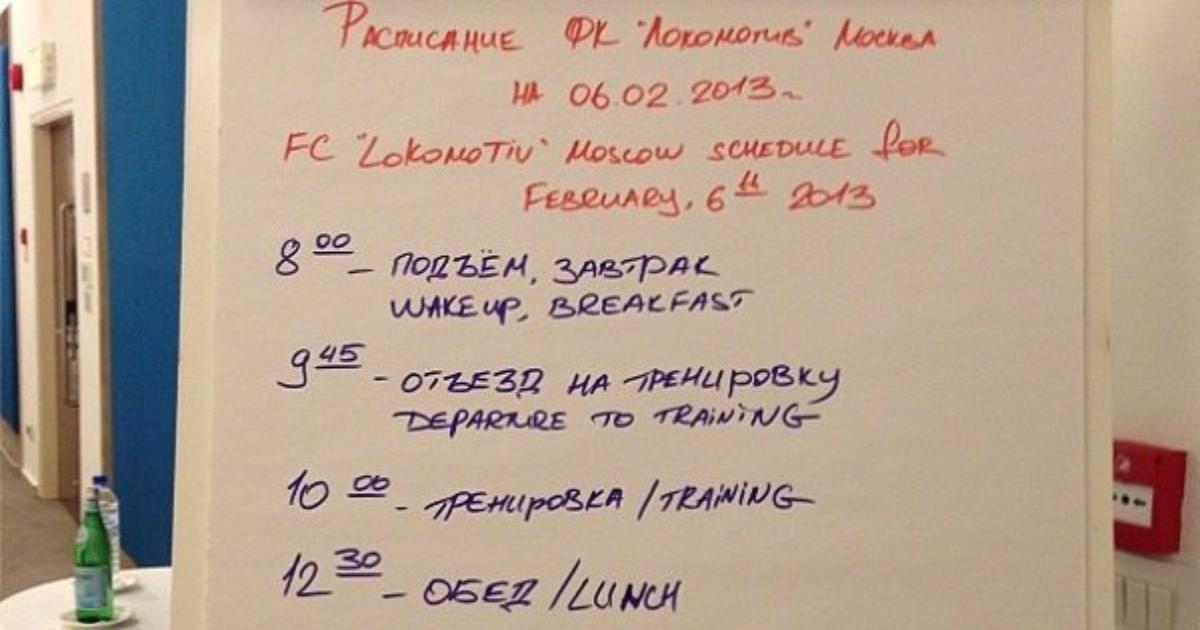 Расписание ФК "Локомотив" Москва
на 06.02.2013г.
FC "Lokomotiv" Moscow schedule for
February, 6th 2013
8 00 – подъём, завтрак
wake up, breakfast
9 45 – отъезд на тренировку
departure to training
10 00 – тренировка / training
12 30 – обед / lunch